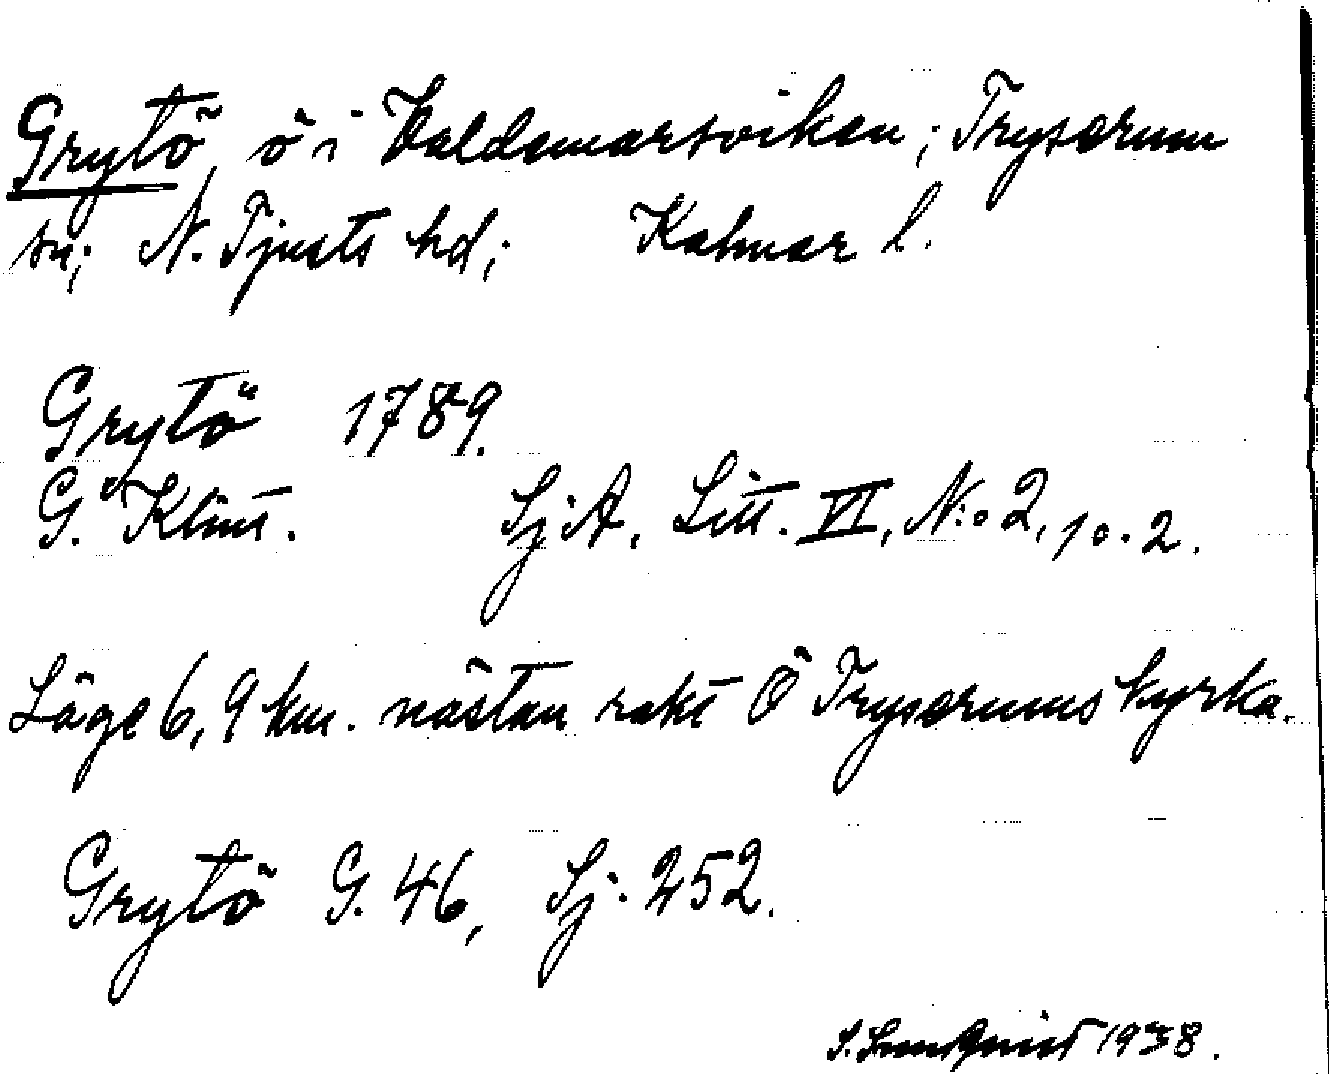 Grytö, ö i Valdemarsviken; Tryserum
sn; N. Tjusts hd; Kalmar l.
Grytö 1789.
G. af Klint. SjA. Litt. VI, N:o 2, 10.2.
Läge 6,9 km. nästan rakt Ö Tryserums kyrka.
Grytö G. 46, Sj. 252.
1938.